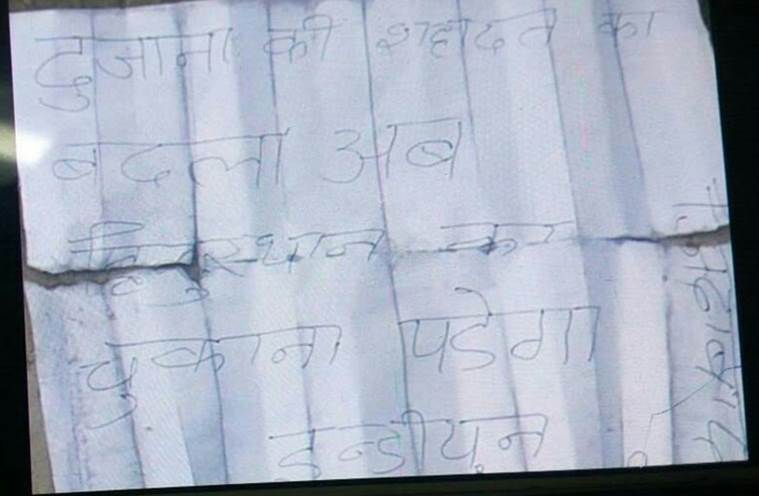 दुजाना की शहादत का
बदला अब
हिन्दुस्थान का
चुकाना पडेगा
इन्डीयन